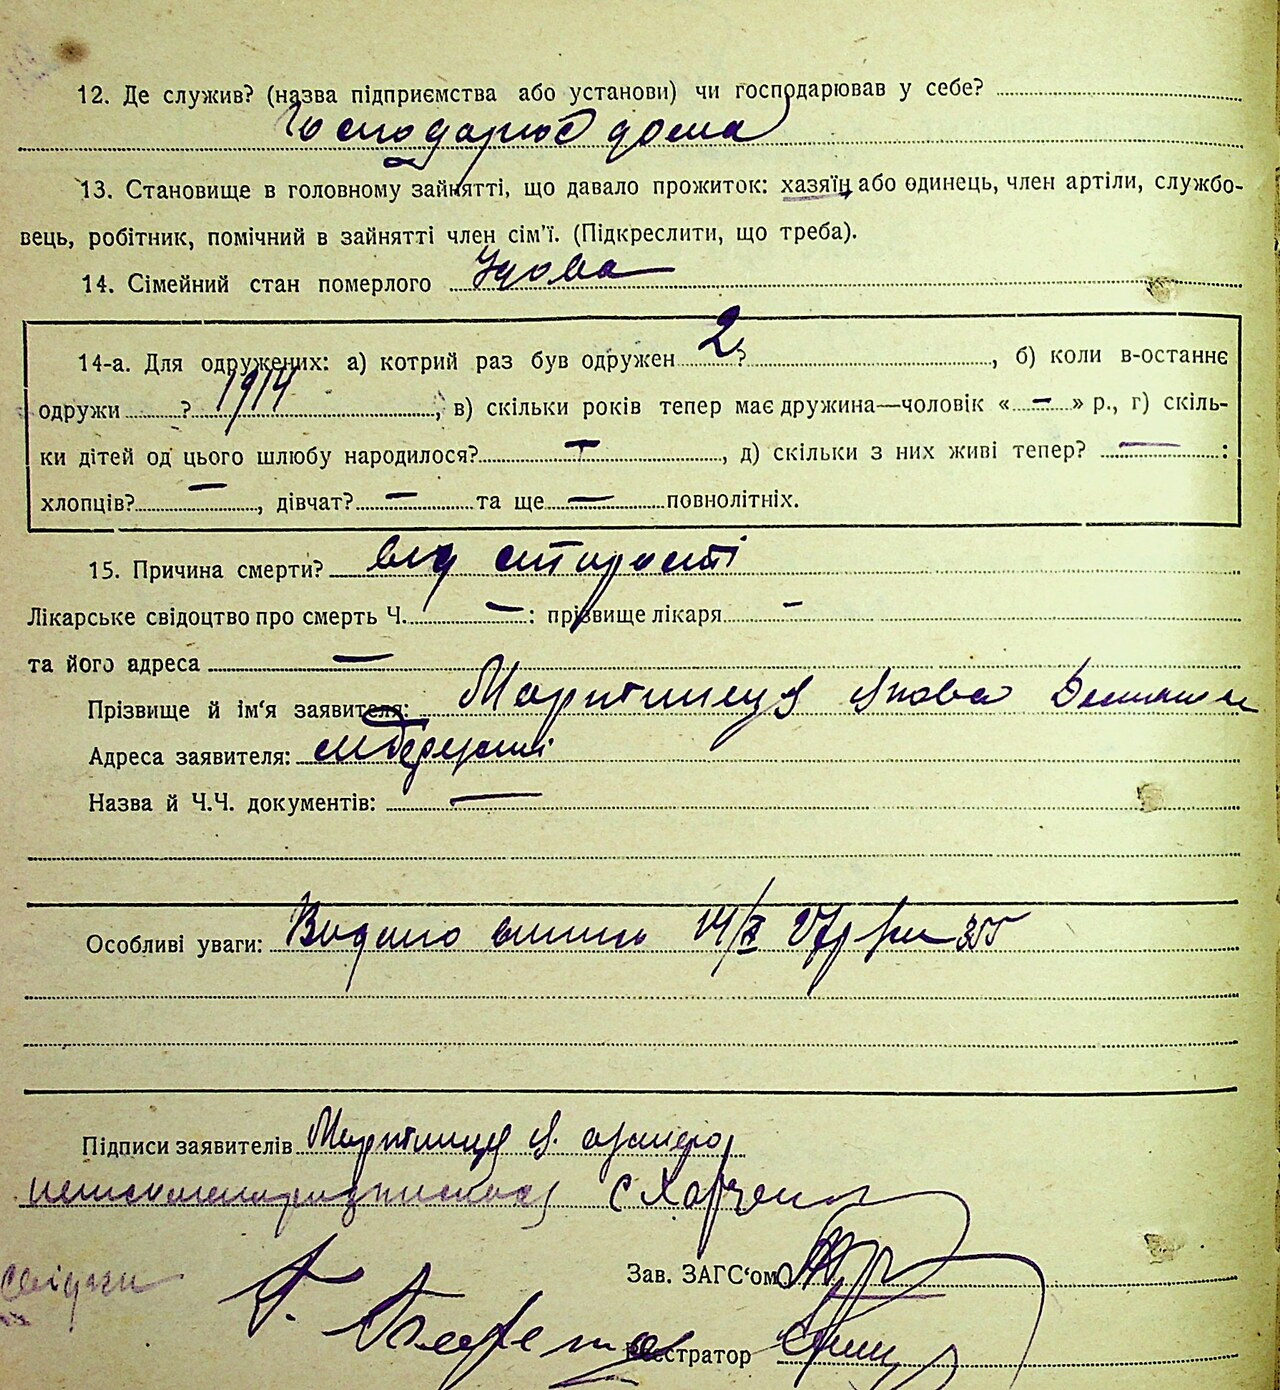 12. Де служив? (назва підприємства або установи) чи господарював у себе?
Господарюв дома
13. Становище в головному зайнятті, що давало прожиток: хазяїн або одинець, член артіли, службо-
вець, робітник, помічний в зайнятті член сім'ї. (Підкреслити, що треба).
14. Сімейний стан померлого Удова
14-а. Для одружених: а) котрий раз був одружен 2 ?, б) коли в-останнє
одружи ? 1914, в) скільки років тепер має дружина—чоловік « — » р., г) скіль-
ки дітей од цього шлюбу народилося? —, д) скільки з них живі тепер? — :
хлопців? —, дівчат? — та ще — повнолітніх.
15. Причина смерти? від старості
Лікарське свідоцтво про смерть Ч. — : прізвище лікаря —
та його адреса —
Прізвище й ім'я заявителя: Мартинець
Адреса заявителя:
Назва й Ч.Ч. документів: —
Особливі уваги: Видано
Підписи заявителів Мартинець
с Харченко
свідки
Зав. ЗАГС'ом
Реєстратор